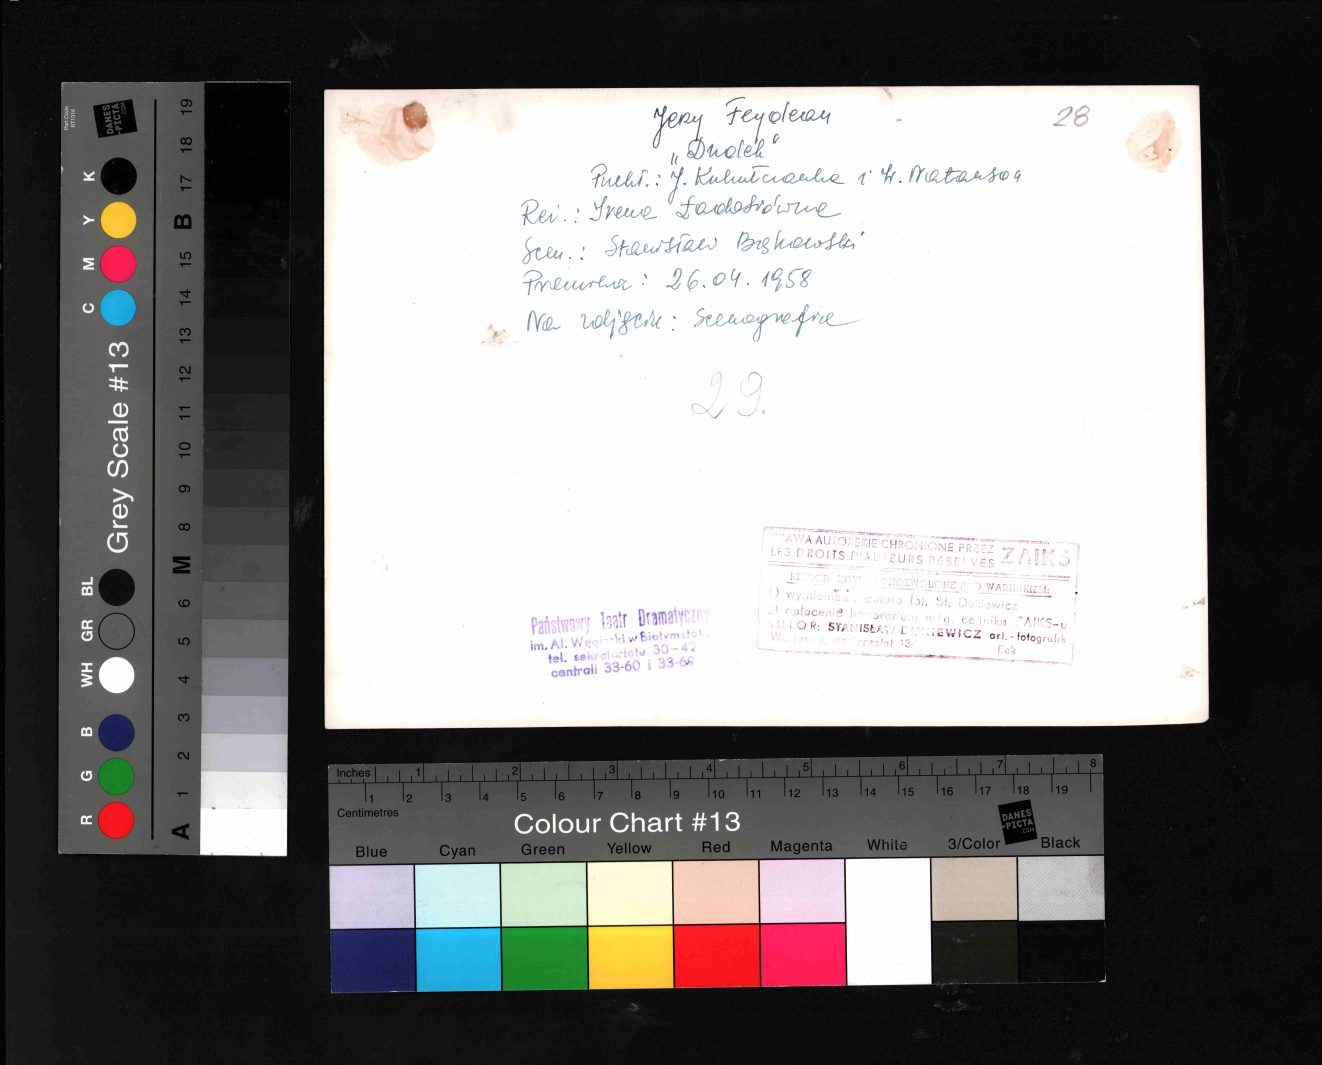 Jerzy Feydeau
„Dudek"
Przekł.: J. Kukulczanka i W. Natanson
Reż.: Irena Ładosiówna
Scen.: Stanisław Bąkowski
Premiera: 26.04.1958
Na zdjęciu: Scenografia
28
29.
Państwowy Teatr Dramatyczny
im. Al. Węgierki w Białymstoku
tel. sekretariatu 30-42
centrali 33-60 i 33-69
PRAWA AUTORSKIE CHRONIONE PRZEZ
LES DROITS D'AUTEURS RESERVES
ZAIKS
DOZWOLONE POD WARUNKIEM:
1) wymienienia autora fot. St. Dukiewicz
2) opłacenie honorarium w/g. cennika ZAIKS-u
AUTOR: STANISŁAW DUKIEWICZ art.-fotografik
Rok
Grey Scale #13
DANES
-PICTA
.COM
Part Code
ST1316
K Y M C
BL GR WH
B G R
19 18 17 B 15 14 13 12 11 10 9 8 M 6 5 4 3 2 1 A
Inches 1 2 3 4 5 6 7 8
1 2 3 4 5 6 7 8 9 10 11 12 13 14 15 16 17 18 19
Centimetres
Colour Chart #13
DANES
-PICTA
.COM
Blue Cyan Green Yellow Red Magenta White 3/Color Black